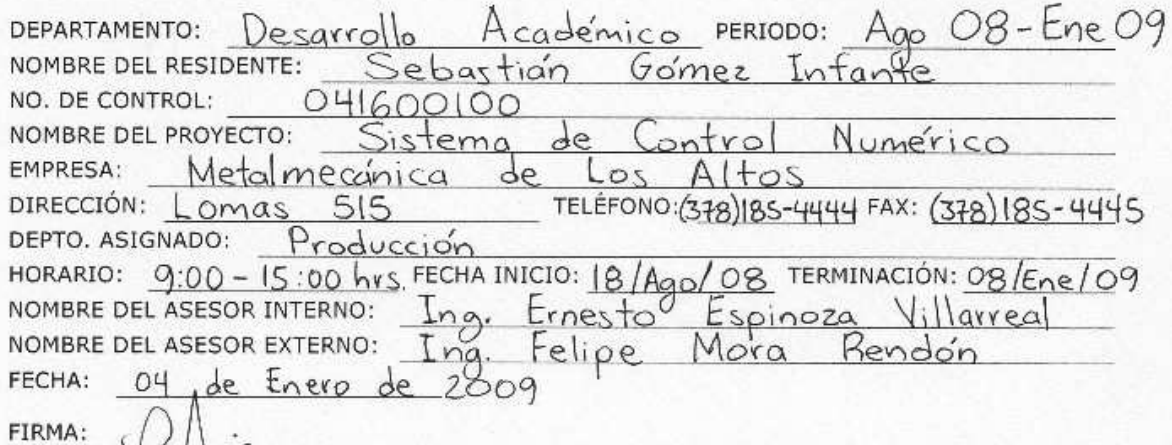 DEPARTAMENTO: Desarrollo Académico PERIODO: Ago 08-Ene 09
NOMBRE DEL RESIDENTE: Sebastián Gómez Infante
NO. DE CONTROL: 041600100
NOMBRE DEL PROYECTO: Sistema de Control Numérico
EMPRESA: Metalmecánica de Los Altos
DIRECCIÓN: Lomas 515 TELÉFONO: (378)185-4444 FAX: (378)185-4445
DEPTO. ASIGNADO: Producción
HORARIO: 9:00-15:00 hrs. FECHA INICIO: 18/Ago/08 TERMINACIÓN: 08/Ene/09
NOMBRE DEL ASESOR INTERNO: Ing. Ernesto Espinoza Villarreal
NOMBRE DEL ASESOR EXTERNO: Ing. Felipe Mora Rendón
FECHA: 04 de Enero de 2009
FIRMA: